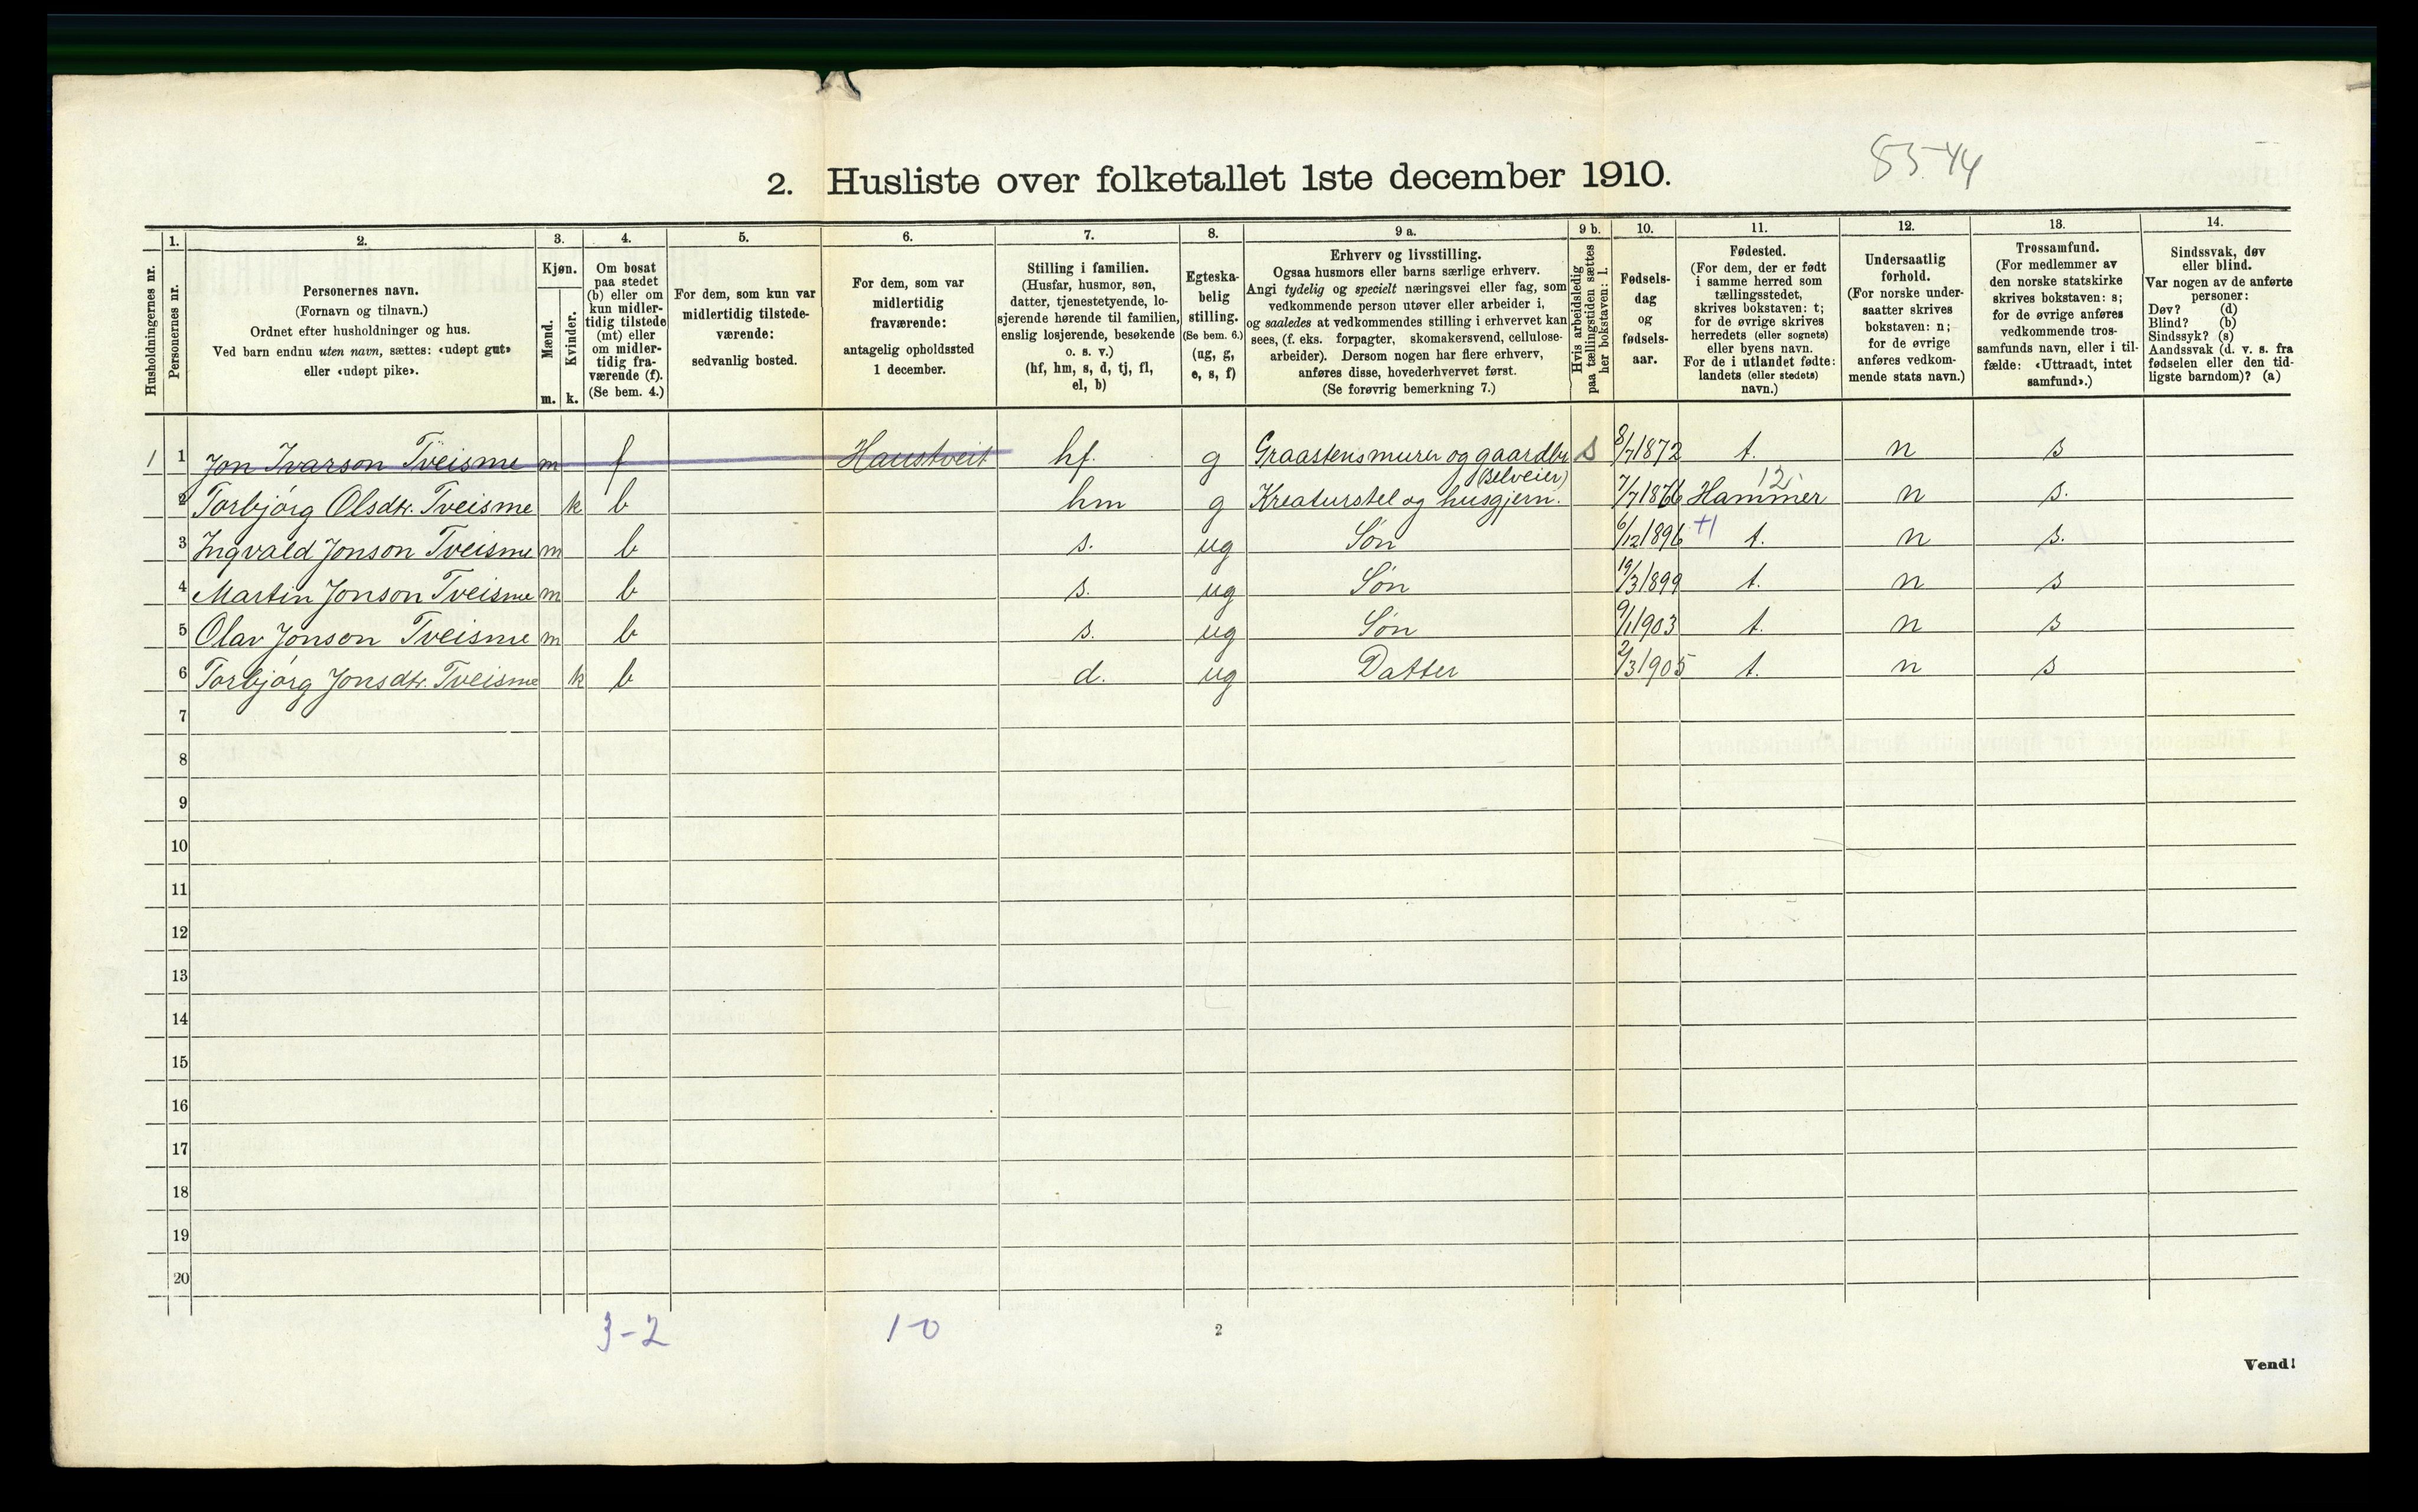 85 44
2. Husliste over folketallet 1ste december 1910.
Husholdningernes nr.
1.
Personernes nr.
2.
Personernes navn.
(Fornavn og tilnavn.)
Ordnet efter husholdninger og hus.
Ved barn endnu uten navn, sættes: «udøpt gut»
eller «udøpt pike».
3.
Kjøn.
Mænd.
Kvinder.
m. k.
4.
Om bosat
paa stedet
(b) eller om
kun midler-
tidig tilstede
(mt) eller
om midler-
tidig fra-
værende (f).
(Se bem. 4.)
5.
For dem, som kun var
midlertidig tilstede-
værende:
sedvanlig bosted.
6.
For dem, som var
midlertidig
fraværende:
antagelig opholdssted
1 december.
7.
Stilling i familien.
(Husfar, husmor, søn,
datter, tjenestetyende, lo-
sjerende hørende til familien,
enslig losjerende, besøkende
o. s. v.)
(hf, hm, s, d, tj, fl,
el, b)
8.
Egteska-
belig
stilling.
(Se bem. 6.)
(ug, g,
e, s, f)
9 a.
Erhverv og livsstilling.
Ogsaa husmors eller barns særlige erhverv.
Angi tydelig og specielt næringsvei eller fag, som
vedkommende person utøver eller arbeider i,
og saaledes at vedkommendes stilling i erhvervet kan
sees, (f. eks. forpagter, skomakersvend, cellulose-
arbeider). Dersom nogen har flere erhverv,
anføres disse, hovederhvervet først.
(Se forøvrig bemerkning 7.)
9 b.
Hvis arbeidsledig
paa tællingstiden sættes
her bokstaven: l.
10.
Fødsels-
dag
og
fødsels-
aar.
11.
Fødested.
(For dem, der er født
i samme herred som
tællingsstedet,
skrives bokstaven: t;
for de øvrige skrives
herredets (eller sognets)
eller byens navn.
For de i utlandet fødte:
landets (eller stedets)
navn.)
12.
Undersaatlig
forhold.
(For norske under-
saatter skrives
bokstaven: n;
for de øvrige
anføres vedkom-
mende stats navn.)
13.
Trossamfund.
(For medlemmer av
den norske statskirke
skrives bokstaven: s;
for de øvrige anføres
vedkommende tros-
samfunds navn, eller i til-
fælde: «Uttraadt, intet
samfund».)
14.
Sindssvak, døv
eller blind.
Var nogen av de anførte
personer:
Døv? (d)
Blind? (b)
Sindssyk? (s)
Aandssvak (d. v. s. fra
fødselen eller den tid-
ligste barndom)? (a)
1 1 Jon Ivarson Tveisme m f Haustveit hf. g Graastensmurer og gaardbr s 8/7 1872 t. n s
(Selveier)
2 Torbjörg Olsdtr. Tveisme k b hm g Kreaturstel og husgjern. 7/7 1866 Hammer 12 n s.
3 Ingvald Jonson Tveisme m b s. ug Søn 6/12 1896 +1 t. n s.
4 Martin Jonson Tveisme m b s. ug Søn 19/3 1899 t. n s
5 Olav Jonson Tveisme m b s. ug Søn 9/1 1903 t. n s
6 Torbjörg Jonsdtr. Tveisme k b d. ug Datter 2/3 1905 t. n s
7
8
9
10
11
12
13
14
15
16
17
18
19
20
3-2 1-0
2
Vend!